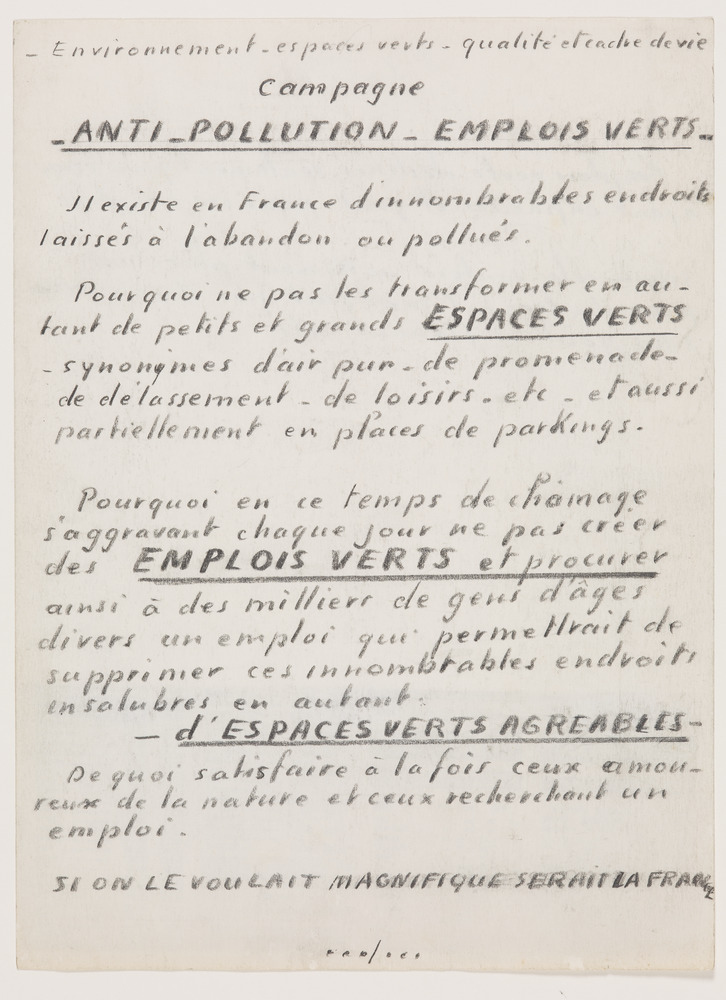 - Environnement - espaces verts - qualité et cadre de vie
Campagne
- ANTI-POLLUTION - EMPLOIS VERTS -
Il existe en France d'innombrables endroits
laissés à l'abandon ou pollués.
Pourquoi ne pas les transformer en au-
tant de petits et grands ESPACES VERTS
- synonymes d'air pur - de promenade -
de délassement - de loisirs - etc - et aussi
partiellement en places de parkings.
Pourquoi en ce temps de chômage
s'aggravant chaque jour ne pas créer
des EMPLOIS VERTS et procurer
ainsi à des milliers de gens d'âges
divers un emploi qui permettrait de
supprimer ces innombrables endroits
insalubres en autant.
- d'ESPACES VERTS AGREABLES -
De quoi satisfaire à la fois ceux amou-
reux de la nature et ceux recherchant un
emploi.
SI ON LE VOULAIT MAGNIFIQUE SERAIT LA FRANCE
.../...